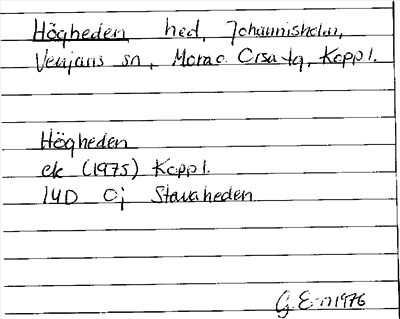 Högheden, hed, Johannisholm,
Venjans sn, Mora o. Orsa tg, Koppl.
Högheden
ek (1975) Koppl.
14D 0j Stavaheden
G. E-n 1976